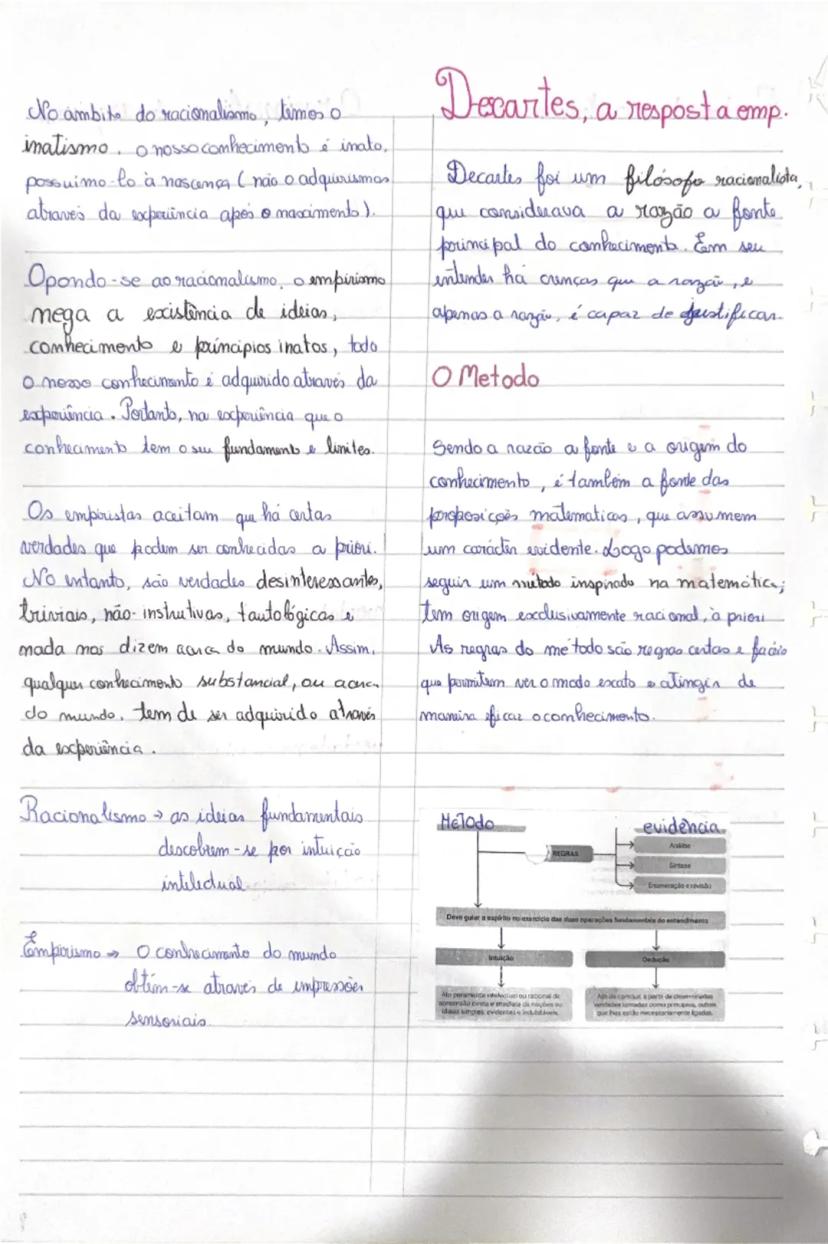 No âmbito do racionalismo, temos o
inatismo. o nosso conhecimento é inato,
possuimo-lo à nascença (não o adquirimos
através da experiência após o nascimento).
Opondo-se ao racionalismo, o empirismo
nega a existência de ideias,
conhecimento e princípios inatos, todo
o nosso conhecimento é adquirido através da
experiência. Portanto, na experiência que o
conhecimento tem o seu fundamento e limites.
Os empiristas aceitam que há certas
verdades que podem ser conhecidas a priori.
No entanto, são verdades desinteressantes,
triviais, não-instrutivas, tautológicas e
nada nos dizem acerca do mundo. Assim,
qualquer conhecimento substancial, ou acerca
do mundo, tem de ser adquirido através
da experiência.
Racionalismo → as ideias fundamentais
descobrem-se por intuição
intelectual.
Empirismo → O conhecimento do mundo
obtém-se através de impressões
sensoriais.
Decartes, a resposta emp.
Decartes foi um filósofo racionalista,
que considerava a razão a fonte
principal do conhecimento. Em seu
entender há crenças que a razão, e
apenas a razão, é capaz de justificar.
O Metodo
Sendo a razão a fonte e a origem do
conhecimento, é também a fonte das
proposições matematicas, que assumem
um carácter evidente. Logo podemos
seguir um método inspirado na matemática;
tem origem exclusivamente racional, à priori
As regras do método são regras certas e fáceis
que permitem ver o modo exato e atingir de
maneira eficaz o conhecimento.
Método
evidência
REGRAS
Análise
Síntese
Enumeração e revisão
Deve guiar o espírito no exercício das duas operações fundamentais do entendimento
Intuição
Dedução
Ato puramente intelectual ou racional de
apreensão direta e imediata de noções ou
ideias simples, evidentes e indubitáveis.
Ato de concluir, a partir de determinadas
verdades tomadas como princípios, outras
que lhes estão necessariamente ligadas.